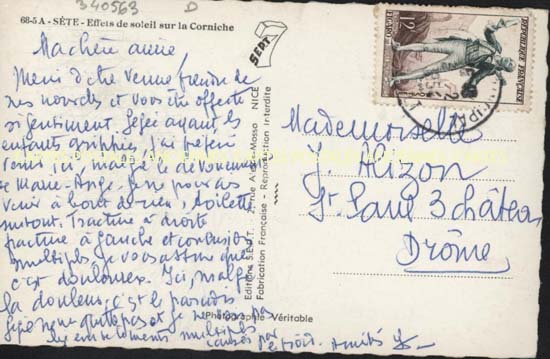 340563 D
68-5 A - SÈTE - Effets de soleil sur la Corniche
Ma chère amie
Merci d'être venue prendre de
mes nouvelles et vous être offerte
si gentiment. Gégé ayant les
enfants grippés, j'ai préféré
venir ici, malgré le dévouement
de Marie-Ange. Je ne pouvais
venir à bout de rien, toilette
surtout. Fracture à droite
fracture à gauche et contusions
multiples je vous assure que
c'est douloureux. Ici, malgré
la douleur, c'est le paradis
Gégé ne me quitte pas et je ne
pas
les multiples
causés par Amitiés
SEPT
Editions S.E.P.T. - 2, rue A.-Mosso - NICE
Fabrication Française - Reproduction Interdite
Photographie Véritable
12
REPUBLIQUE FRANÇAISE
FIGARO
Mademoiselle
J. Alizon
St Paul 3 châteaux
Drôme